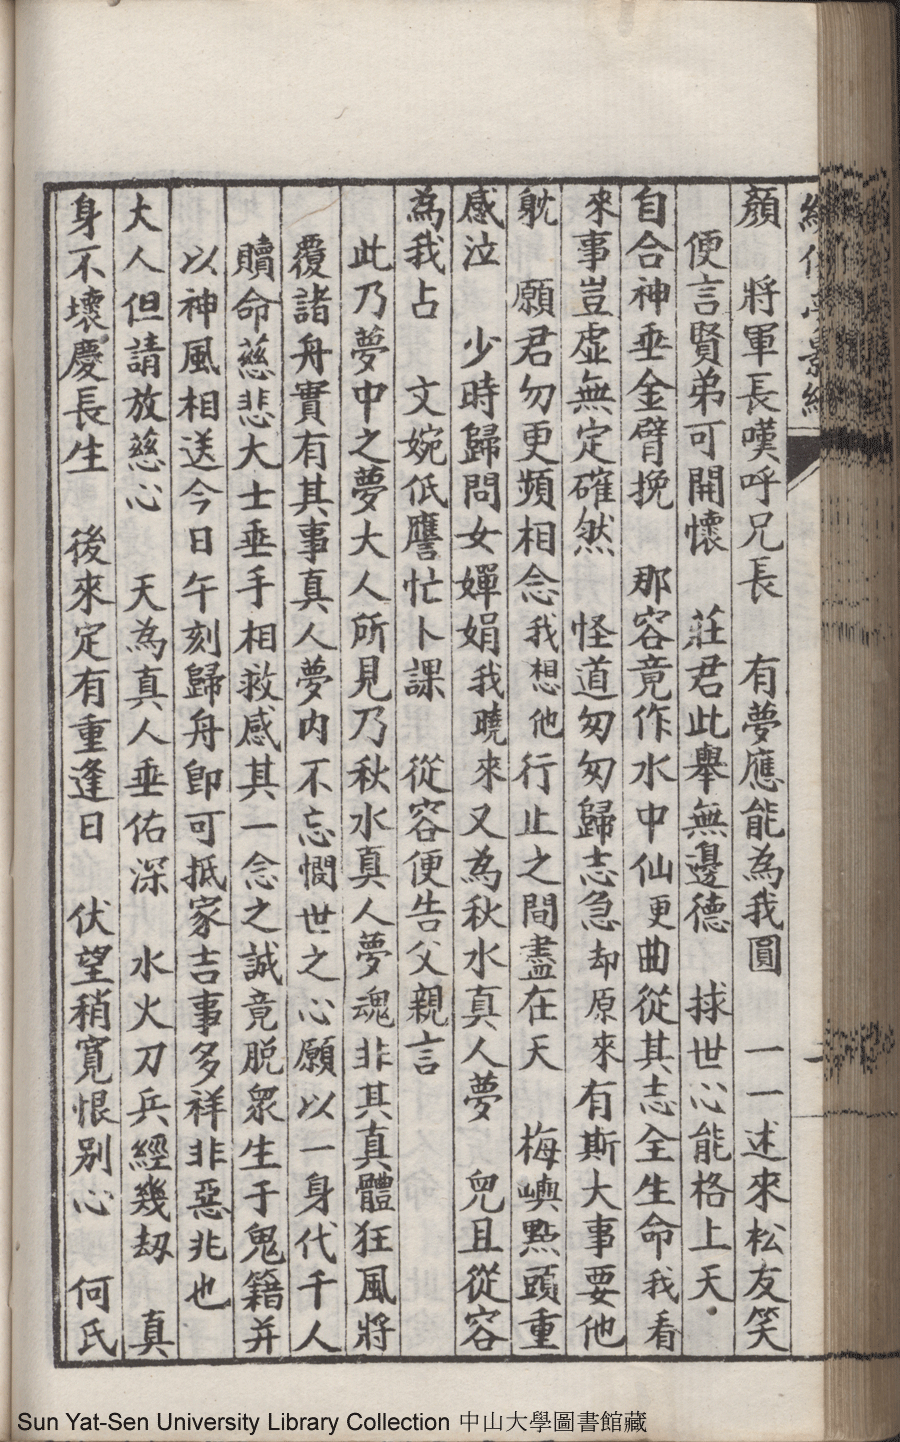 顏　將軍長嘆呼兄長　有夢應能為我圓　一一述來松友笑
便言賢弟可開懷　莊君此舉無邊德　捄世心能格上天
自合神垂金臂挽　那容竟作水中仙更曲從其志全生命我看
來事豈虛無定確然　怪道匆匆歸志急却原來有斯大事要他
躭　願君勿更頻相念我想他行止之間盡在天　梅嶼點頭重
感泣　少時歸問女嬋娟我曉來又為秋水真人夢　兒且從容
為我占　文婉低譍忙卜課　從容便告父親言
此乃夢中之夢大人所見乃秋水真人夢魂非其真體狂風將
覆諸舟實有其事真人夢内不忘憫世之心願以一身代千人
贖命慈悲大士垂手相救感其一念之誠竟脱眾生于鬼籍并
以神風相送今日午刻歸舟卽可抵家吉事多祥非惡兆也
大人但請放慈心　天為真人垂佑深　水火刀兵經幾刼　真
身不壞慶長生　後來定有重逢日　伏望稍寬恨别心　何氏
Sun Yat-Sen University Library Collection 中山大學圖書館藏